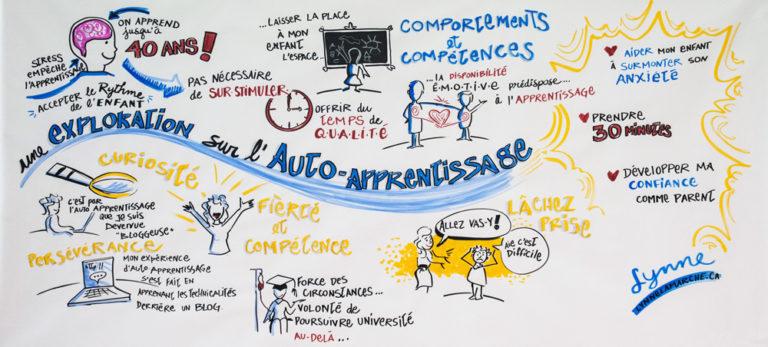 ON APPREND
jusqu'à
40 ANS!
STRESS
EMPÊCHE
l'APPRENTISSAGE
ACCEPTER LE Rythme
de l'ENFANT
PAS NÉCESSAIRE
de SUR STIMULER
...LAISSER LA PLACE
À MON
ENFANT
L'ESPACE...
OFFRIR du
TEMPS de
Q.U.A.L.I.T.É
COMPORTEMENTS
et
COMPÉTENCES
...la DISPONIBILITÉ
É.M.O.T.I.V.E PRÉDISPOSE...
À l'APPRENTISSAGE
AIDER MON ENFANT
À SURMONTER SON
ANXIÉTÉ
PRENDRE
30 MINUTES
DÉVELOPPER MA
CONFIANCE
COMME PARENT
une EXPLORATION sur l'AUTO-APPRENTISSAGE
CURIOSITÉ
C'EST PAR
l'AUTO APPRENTISSAGE
QUE JE SUIS
DEVENUE
"BLOGGEUSE"
FIERTÉ
et
COMPÉTENCE
PERSÉVÉRANCE
MON EXPÉRIENCE
d'AUTO APPRENTISSAGE
S'EST FAIT EN
APPRENANT LES TECHNICALITÉS
DERRIÈRE UN BLOG
FORCE DES
CIRCONSTANCES...
VOLONTÉ de
POURSUIVRE UNIVERSITÉ
AU-DELÀ...
LÂCHEZ
PRISE
ALLEZ VAS-Y!
C'EST
DIFFICILE
Lynne
LYNNELAMARCHE.CA